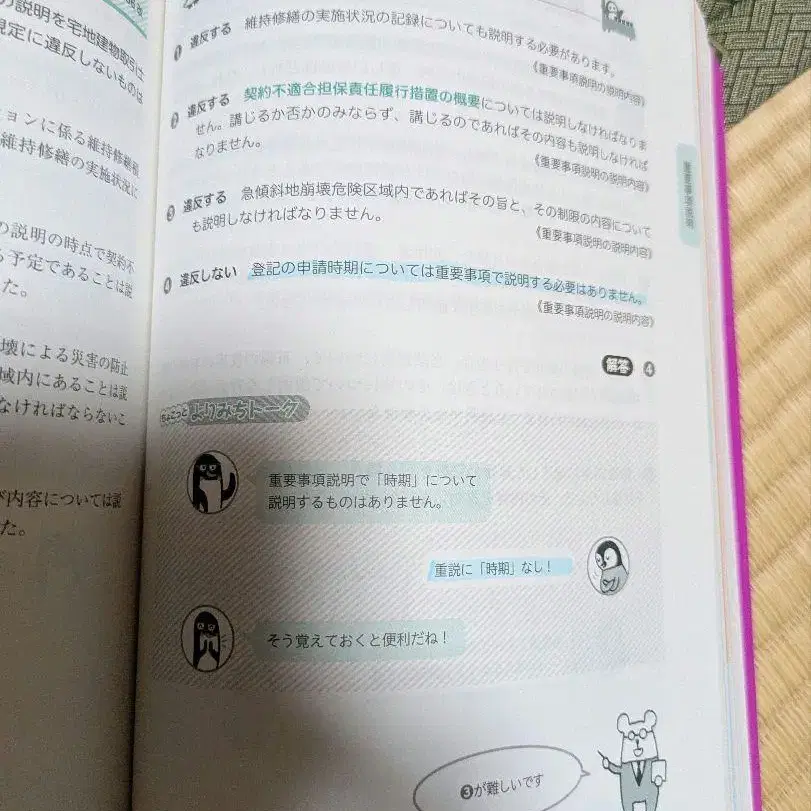 の説明を宅地建物取引士
規定に違反しないものは
ョンに係る維持修繕積
維持修繕の実施状況に
の説明の時点で契約不
る予定であることは説
た。
壊による災害の防止
域内にあることは説
なければならないこ
び内容については説
た。
❶ 違反する 維持修繕の実施状況の記録についても説明する必要があります。
《重要事項説明の説明内容》
❷ 違反する 契約不適合担保責任履行措置の概要については説明しなければなりま
せん。講じるか否かのみならず、講じるのであればその内容も説明しなければ
なりません。
《重要事項説明の説明内容》
❸ 違反する 急傾斜地崩壊危険区域内であればその旨と、その制限の内容について
も説明しなければなりません。
《重要事項説明の説明内容》
❹ 違反しない 登記の申請時期については重要事項で説明する必要はありません。
《重要事項説明の説明内容》
解答 ❹
重要事項説明
ちょこっと よりみちトーク
重要事項説明で「時期」について
説明するものはありません。
重説に「時期」なし！
そう覚えておくと便利だね！
❸が難しいです